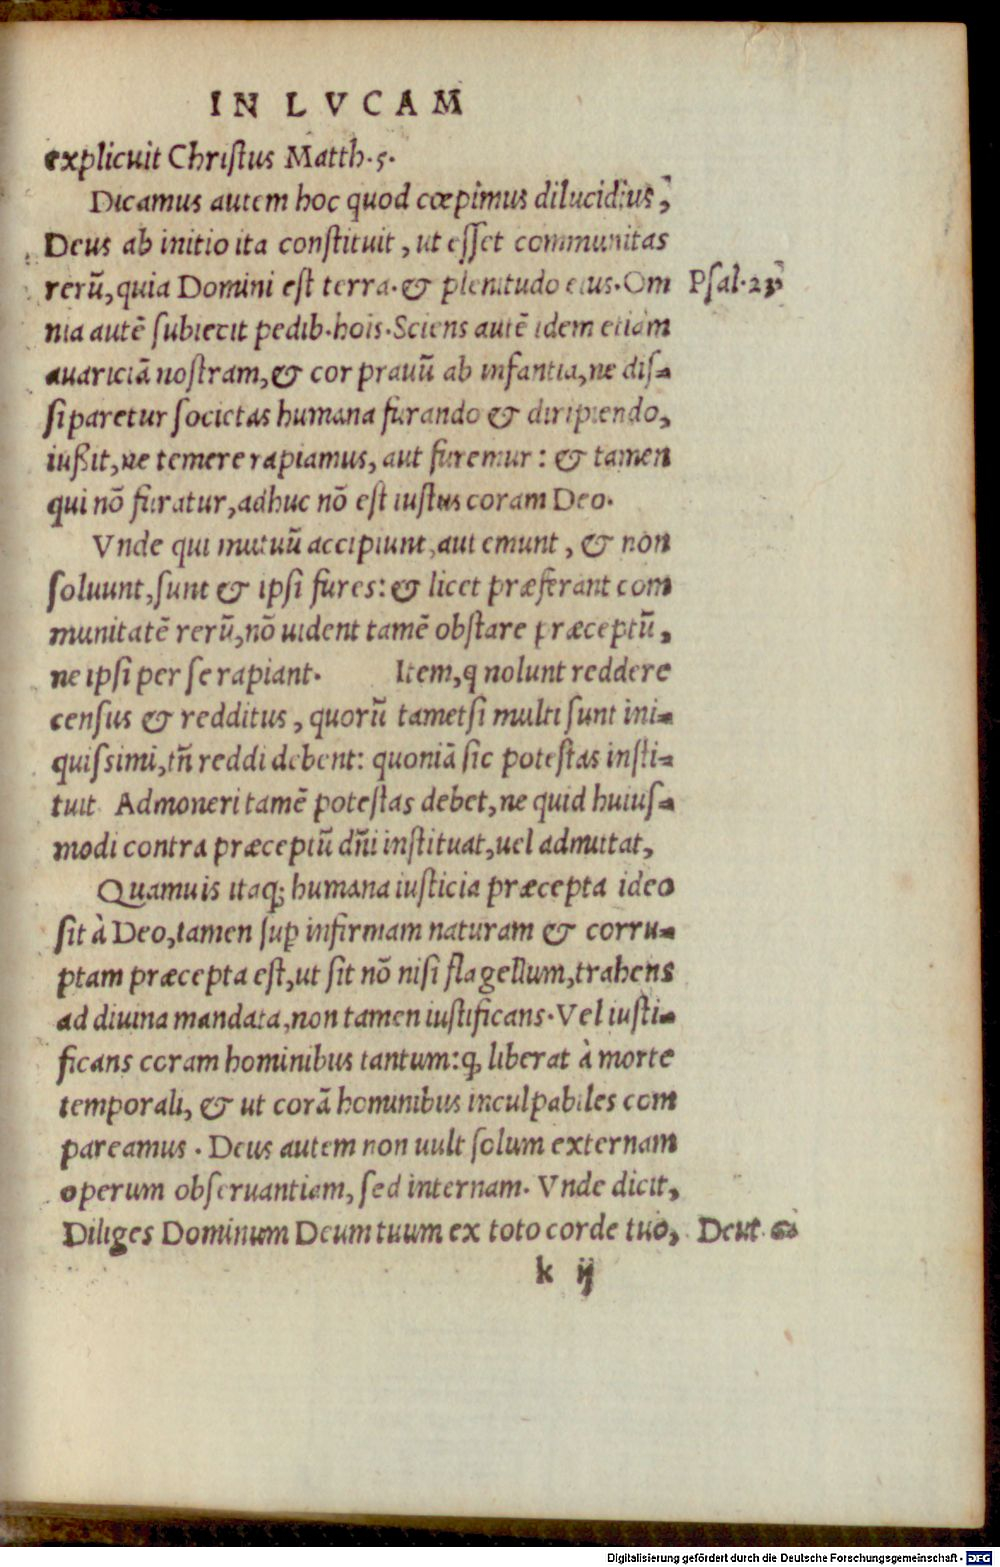 IN LVCAM
explicuit Christus Matth.5.
Dicamus autem hoc quod cœpimus dilucidius,
Deus ab initio ita constituit, ut esset communitas
rerū, quia Domini est terra. & plenitudo eius. Om Psal.23
nia autē subiecit pedib. hois. Sciens autē idem etiam
auariciā nostram, & cor prauū ab infantia, ne dis-
siparetur societas humana furando & diripiendo,
iußit, ne temere rapiamus, aut furemur: & tamen
qui nō furatur, adhuc nō est iustus coram Deo.
Vnde qui mutuū accipiunt, aut emunt, & non
soluunt, sunt & ipsi fures: & licet præferant com
munitatē rerū, nō uident tamē obstare præceptū,
ne ipsi per se rapiant. Item, q nolunt reddere
census & redditus, quorū tametsi multi sunt ini-
quissimi, tñ reddi debent: quoniā sic potestas insti-
tuit Admoneri tamē potestas debet, ne quid huius-
modi contra præceptū dñi instituat, uel admittat,
Quamuis itaq; humana iusticia præcepta ideo
sit à Deo, tamen sup infirmam naturam & corru-
ptam præcepta est, ut sit nō nisi flagellum, trahens
ad diuina mandata, non tamen iustificans. Vel iusti-
ficans coram hominibus tantum: q, liberat à morte
temporali, & ut corā hominibus inculpabiles com
pareamus. Deus autem non uult solum externam
operum obseruantiam, sed internam. Vnde dicit,
Diliges Dominum Deum tuum ex toto corde tuo, Deut. 6
k ij
Digitalisierung gefördert durch die Deutsche Forschungsgemeinschaft - DFG